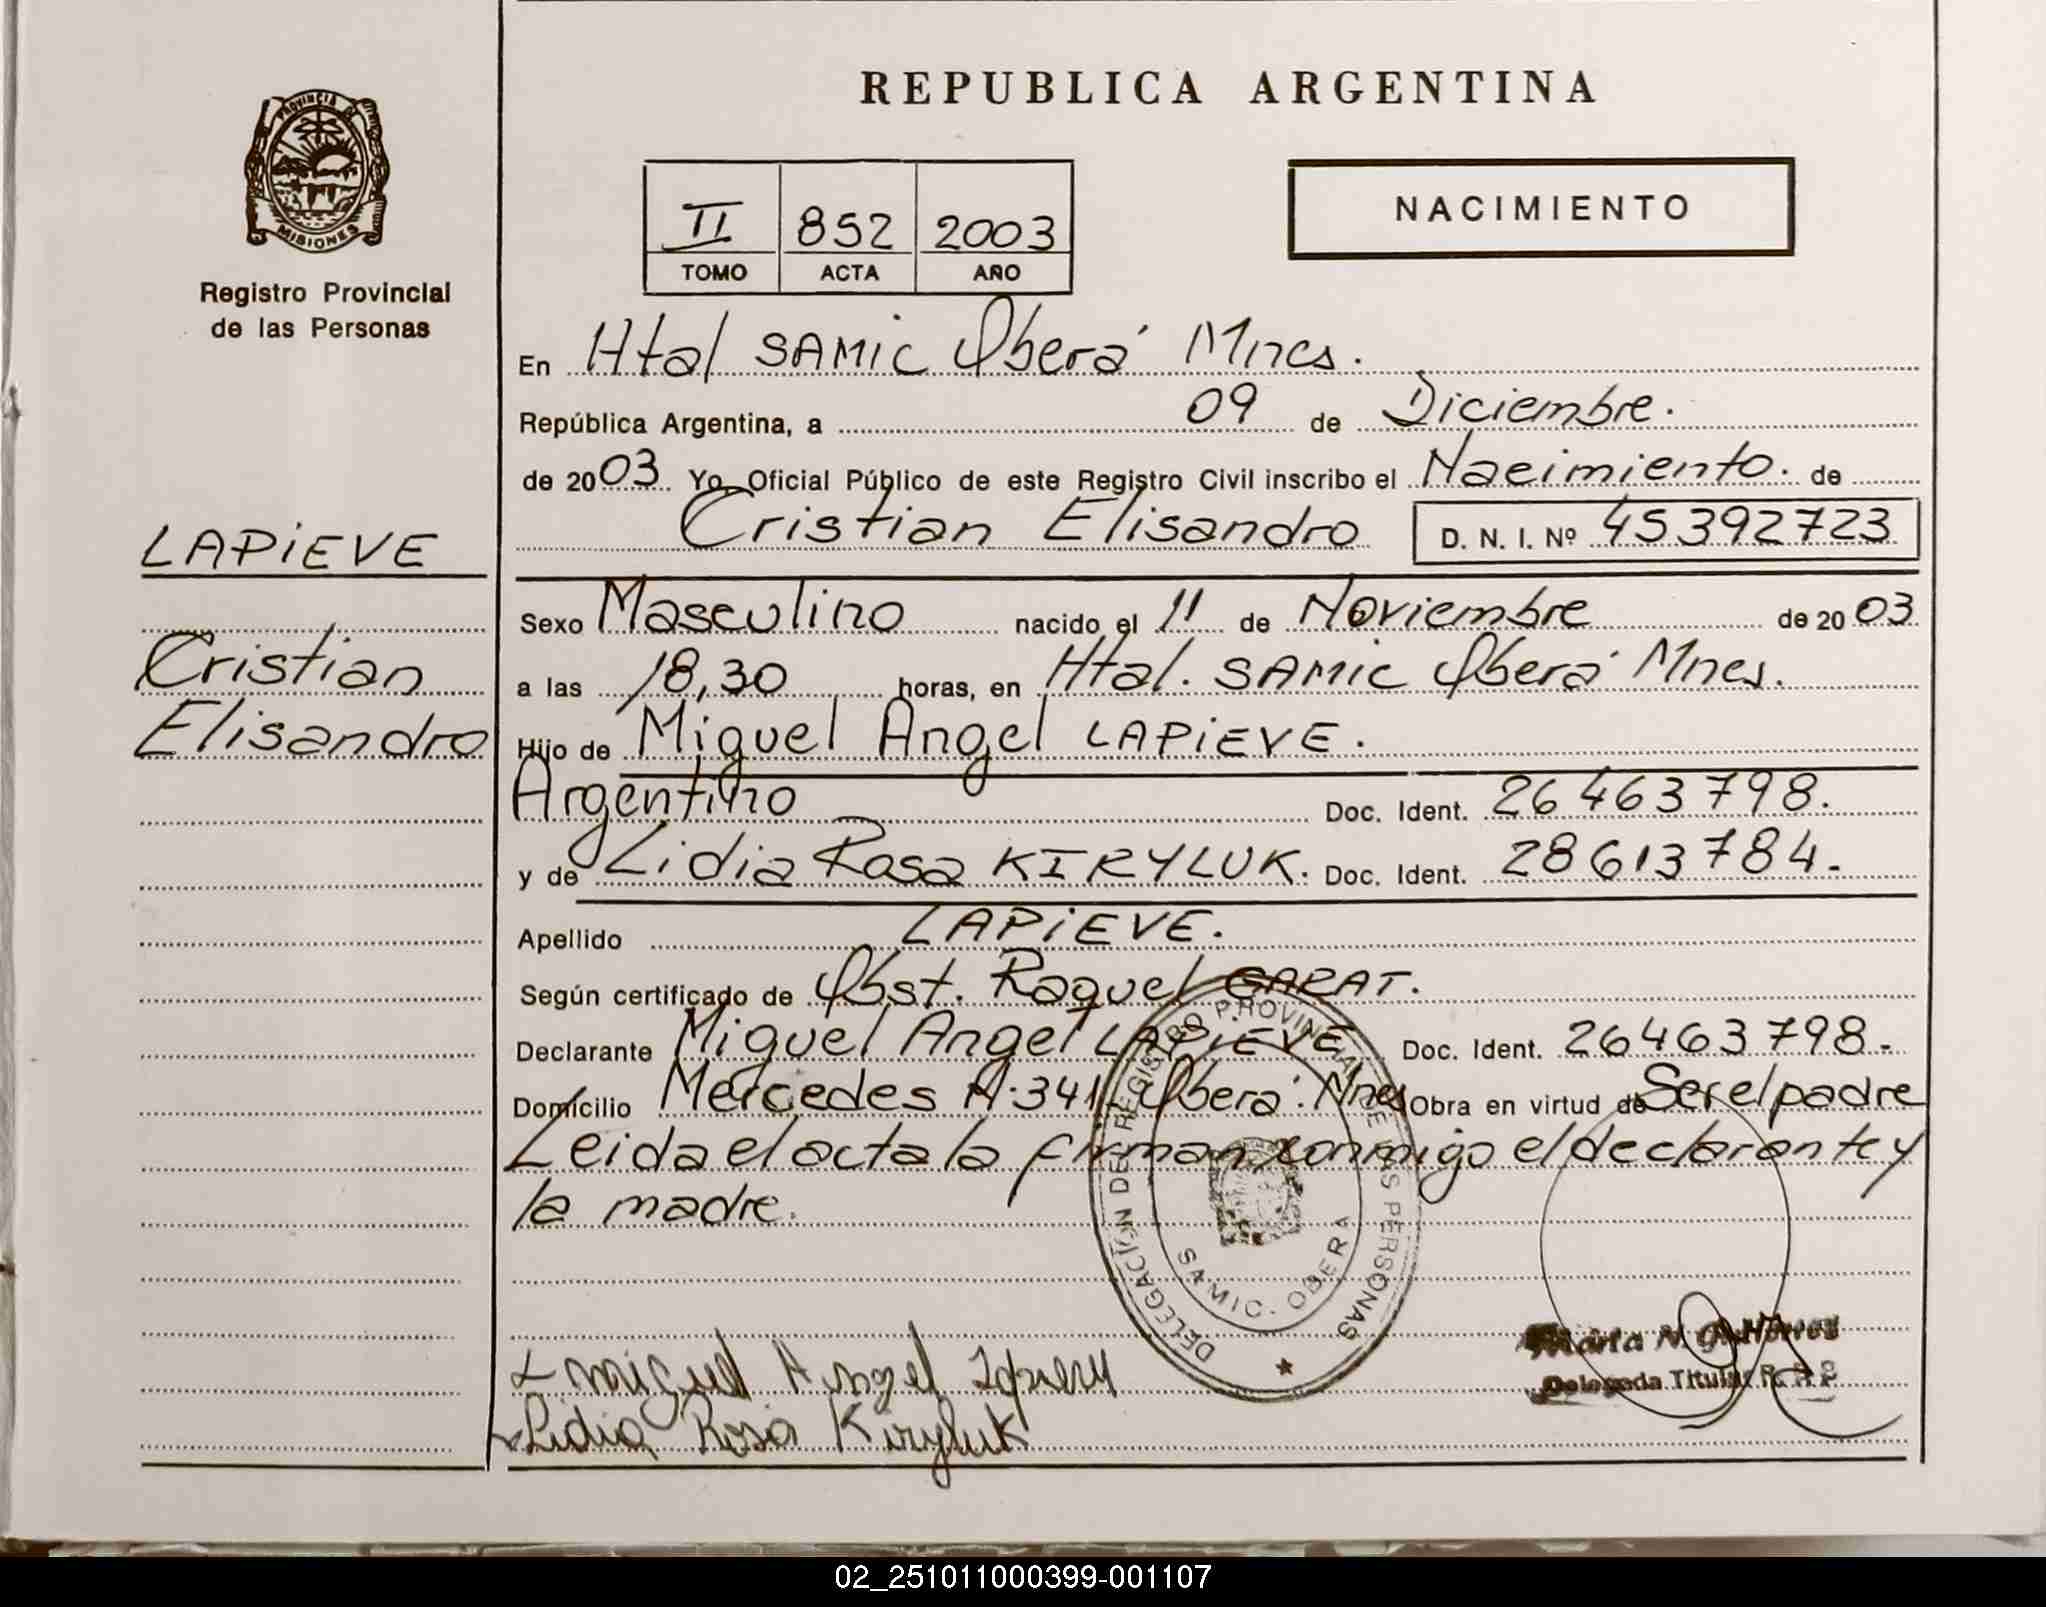 PROVINCIA DE
MISIONES
Registro Provincial
de las Personas
LAPIEVE
Cristian
Elisandro
REPUBLICA ARGENTINA
II 852 2003
TOMO ACTA AÑO
NACIMIENTO
En Htal SAMIC Oberá Mnes.
República Argentina, a 09 de Diciembre.
de 2003. Yo, Oficial Público de este Registro Civil inscribo el Nacimiento. de
Cristian Elisandro D. N. I. Nº 45392723
Sexo Masculino nacido el 11 de Noviembre de 2003
a las 18,30 horas, en Htal. SAMIC Oberá Mnes.
Hijo de Miguel Angel LAPIEVE.
Argentino Doc. Ident. 26463798.
y de Lidia Rosa KIRYLUK. Doc. Ident. 28613784.
Apellido LAPIEVE.
Según certificado de Obst. Raquel GARAT.
Declarante Miguel Angel LAPIEVE Doc. Ident. 26463798.
Domicilio Mercedes A. 341 Oberá. Mnes Obra en virtud de Ser el padre
Leida el acta la firman conmigo el declarante y
la madre.
DELEGACION DEL REGISTRO PROVINCIAL DE LAS PERSONAS
SAMIC - OBERA
Miguel Angel
Lidia Rosa Kiryluk
María N.
Delegada Titular R. P. P.
02_251011000399-001107